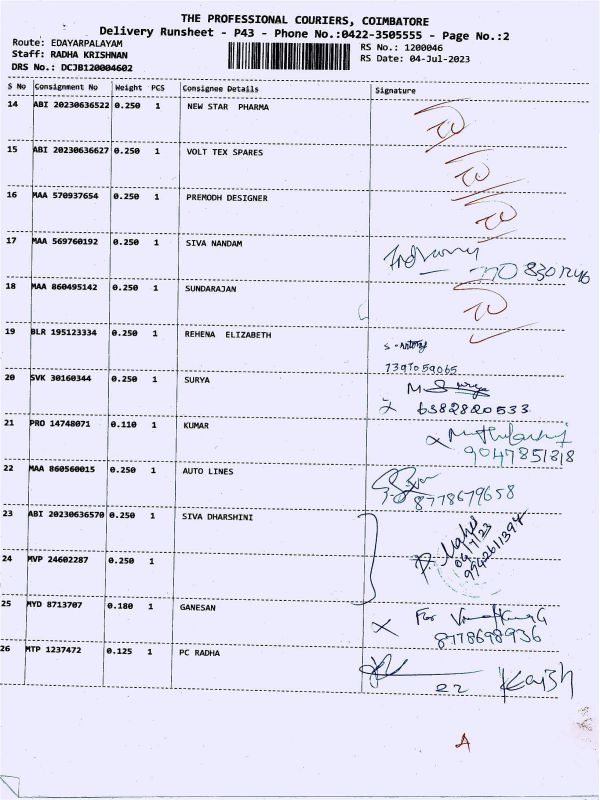 THE PROFESSIONAL COURIERS, COIMBATORE
Delivery Runsheet - P43 - Phone No.:0422-3505555 - Page No.:2
Route: EDAYARPALAYAM
RS No.: 1200046
Staff: RADHA KRISHNAN
RS Date: 04-Jul-2023
DRS No.: DCJB120004602
S No Consignment No Weight PCS Consignee Details Signature
14 ABI 20230636522 0.250 1 NEW STAR PHARMA
15 ABI 20230636627 0.250 1 VOLT TEX SPARES
16 MAA 570937654 0.250 1 PREMODH DESIGNER
17 MAA 569760192 0.250 1 SIVA NANDAM
18 MAA 860495142 0.250 1 SUNDARAJAN
19 BLR 195123334 0.250 1 REHENA ELIZABETH
7397059065
20 SVK 30160344 0.250 1 SURYA
6382820533
21 PRO 14748071 0.110 1 KUMAR
9047851818
22 MAA 860560015 0.250 1 AUTO LINES
8778679658
23 ABI 20230636570 0.250 1 SIVA DHARSHINI
04/7/23
9942611394
24 MVP 24602287 0.250 1
25 MYD 8713707 0.180 1 GANESAN
For
8778698936
26 MTP 1237472 0.125 1 PC RADHA
A